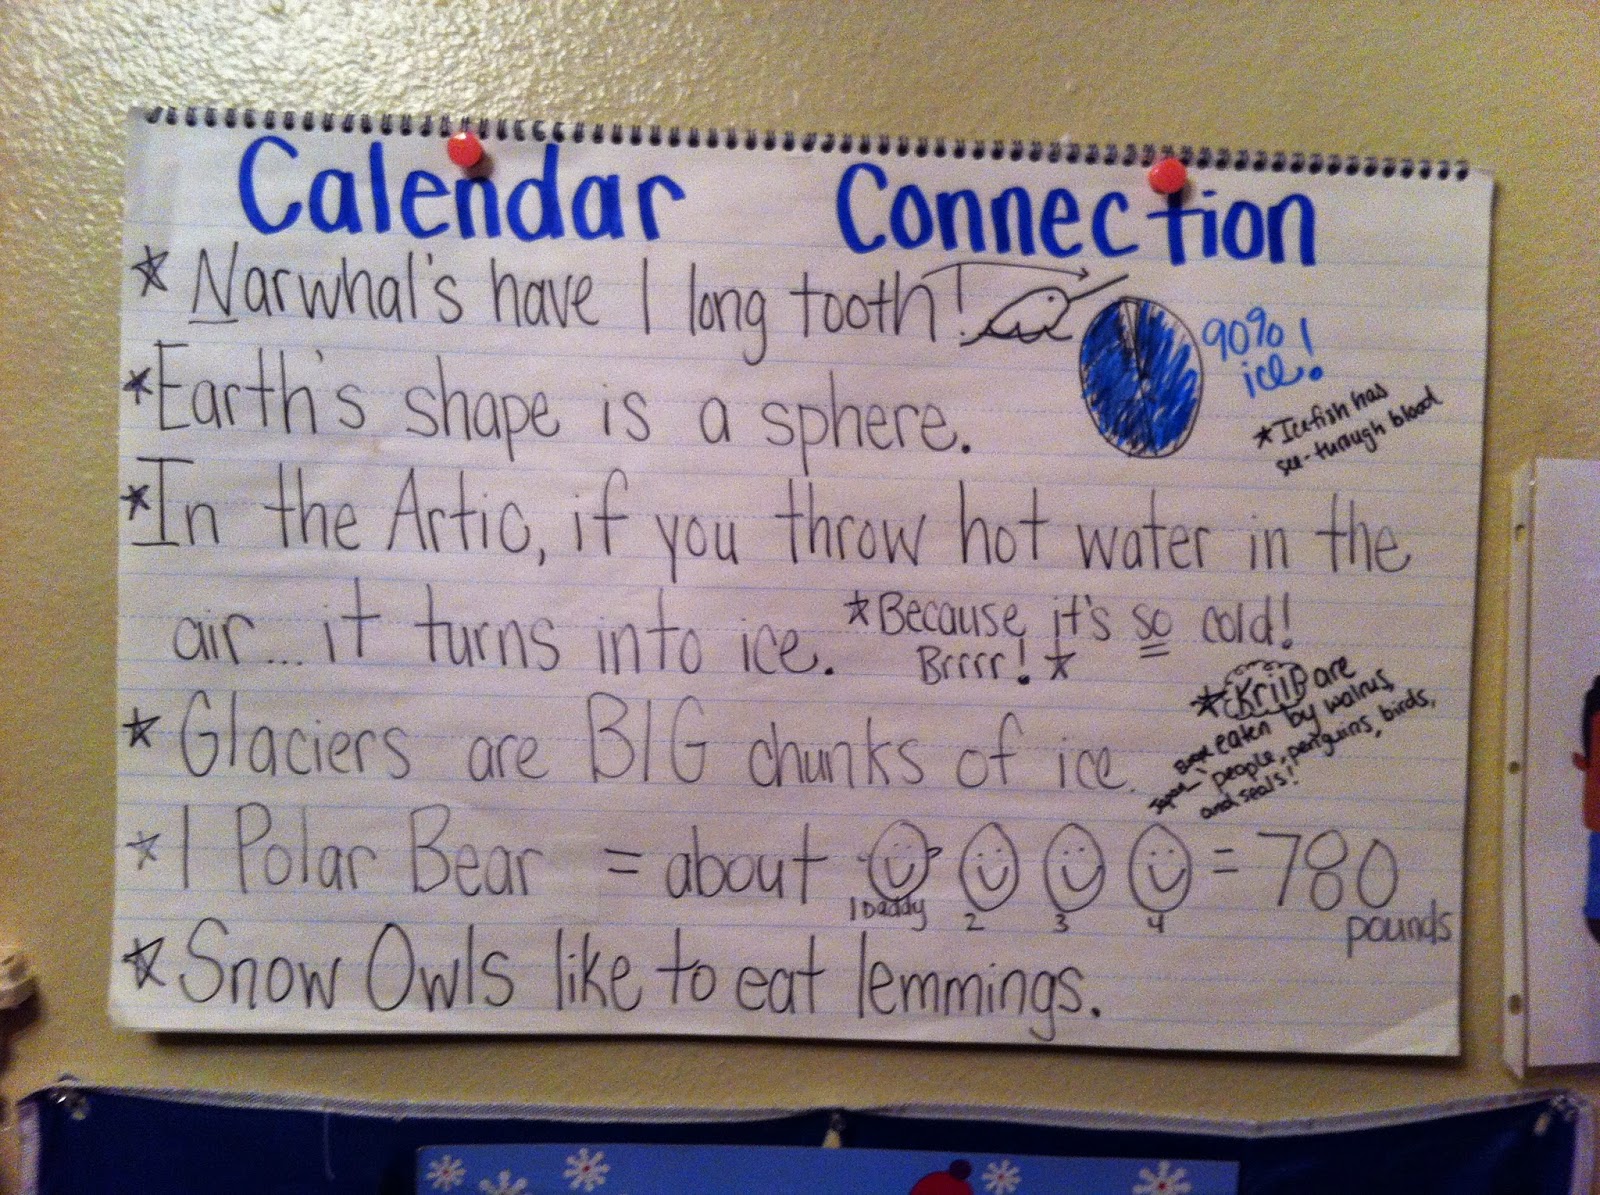 Calendar Connection
* Narwhal's have 1 long tooth!
90%
ice!
* Earth's shape is a sphere.
* Icefish has
see-through blood
* In the Artic, if you throw hot water in the
air... it turns into ice. * Because it's so cold!
Brrrr! *
* Krill are
eaten by walrus,
people, penguins, birds,
Japan
and seals!
* Glaciers are BIG chunks of ice.
* 1 Polar Bear = about = 780
1 Daddy 2 3 4 pounds
* Snow Owls like to eat lemmings.